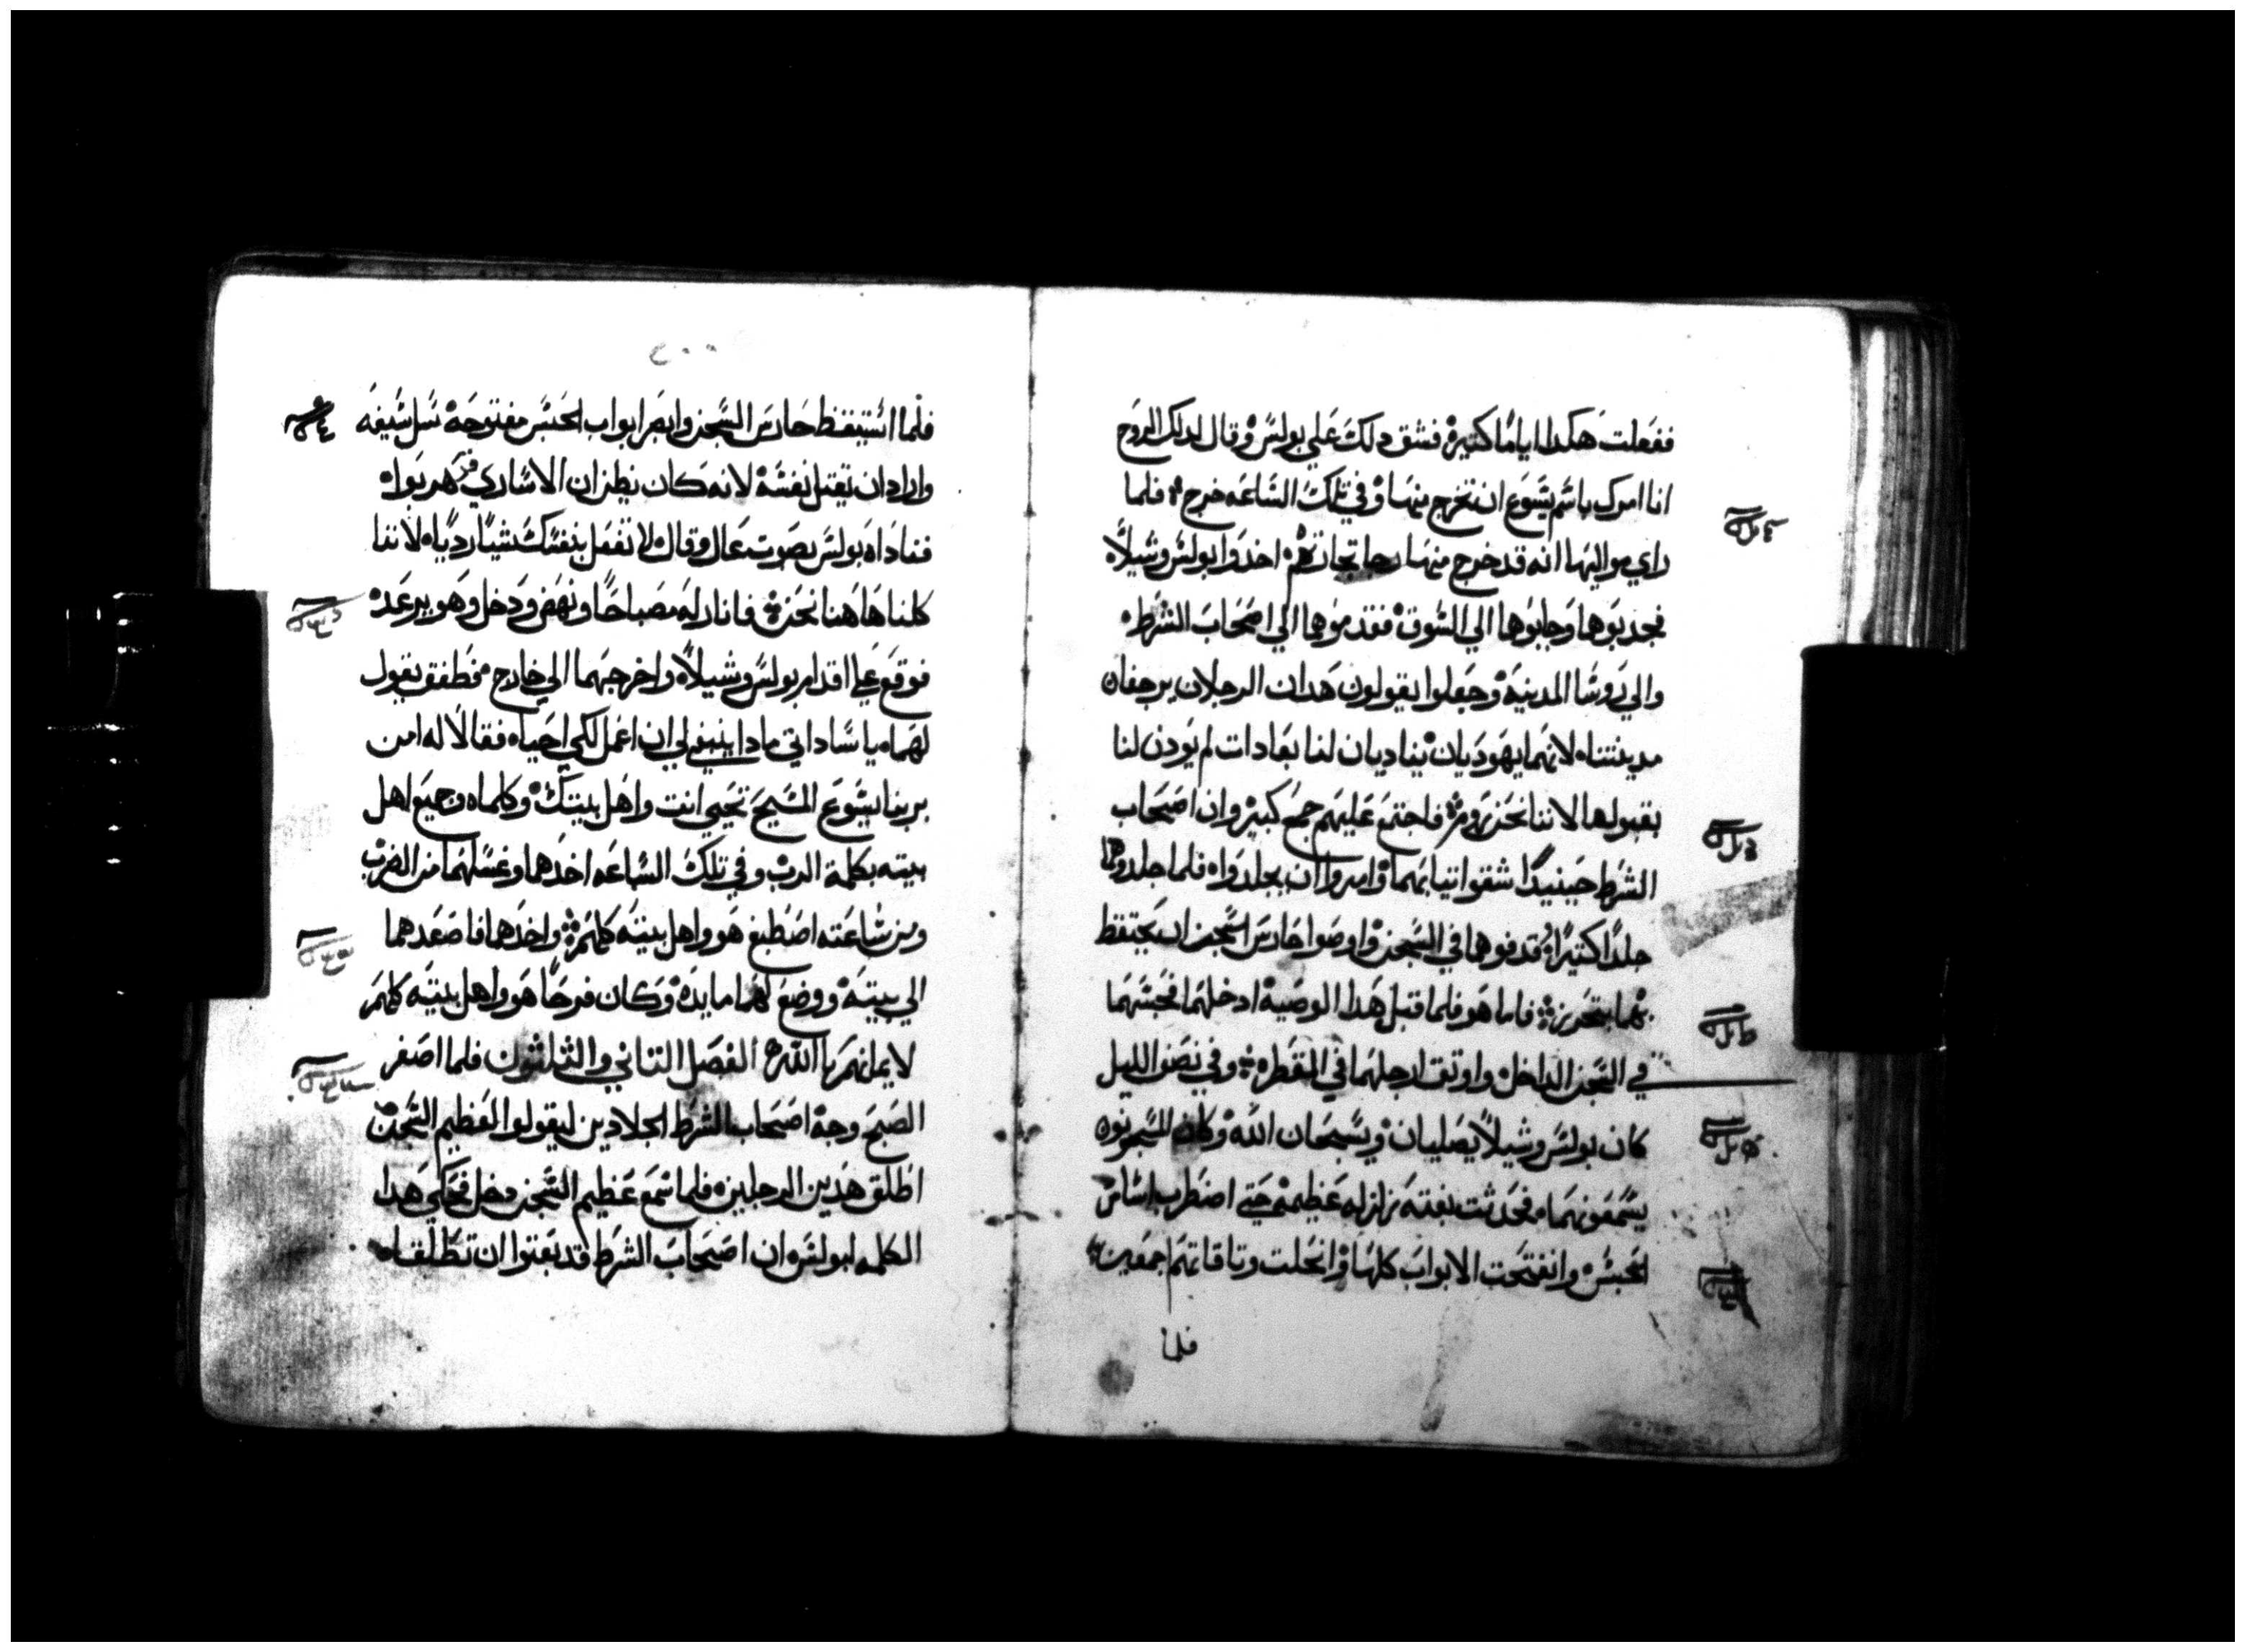 ففعلت هكدا اياما كتيره فشق دلك علي بولس وقال لدلك الروح
انا امرك باسم يسوع ان تخرج منها وفي تلك الساعه خرج فلما
راي مواليها انه قد خرج منها رجا تجارتهم اخدوا بولس وشيلا
فجدبوهما وجابوهما الي السوق فقدموهما الي اصحاب الشرط
والي روسا المدينه وجعلوا يقولون هدان الرجلان يرجفان
مدينتنا لانهما يهوديان يناديان لنا بعادات لم يودن لنا
بقبولها لاننا نحن روم فاجتمع عليهم جمع كبير وان اصحاب
الشرط حينيدا شقوا تيابهما وامروا ان يجلدوا فلما جلدوهما
جلدا كتيرا قدفوهما في السجن واوصوا حارس السجن ان يحتفظ
بهما بتحريز فاما هو فلما قبل هدا الوصية ادخلهما فحبسهما
في السجن الداخل واوتق ارجلهما في المقطره وفي نصف الليل
كان بولس وشيلا يصليان ويسبحان الله وكان المسجونون
يسمعونهما فحدثت بغته زلزله عظيمه حتي اضطرب اساس
الحبس وانفتحت الابواب كلها وانحلت وتاقاتهم اجمعين
فلما
٢٠٠
فلما استيقظ حارس السجن وابصر ابواب الحبس مفتوحه سل سيفه
واراد ان يقتل نفسه لانه كان يظن ان الاساري قد هربوا
فناداه بولس بصوت عال وقال لا تفعل بنفسك شيا رديا لاننا
كلنا هاهنا نحن فانار له مصباحا ونهض ودخل وهو يرعد
فوقع علي اقدام بولس وشيلا واخرجهما الي خارج فطفق يقول
لهما يا ساداتي مادا ينبغي لي ان اعمل لكي احيا فقالا له امن
بربنا يسوع المسيح تحيي انت واهل بيتك وكلماه وجميع اهل
بيته بكلمة الرب وفي تلك الساعه اخدهما وغسلهما من الضرب
ومن ساعته اصطبغ هو واهل بيته كلهم واخدهما فاصعدهما
الي بيته ووضع لهما مايده وكان فرحا هو واهل بيته كلهم
لايمانهم بالله الفصل التاني والثلثون فلما اصفر
الصبح وجه اصحاب الشرط الجلادين ليقولوا لعظيم السجن
اطلق هدين الرجلين فلما سمع عظيم السجن دخل فحكي هدا
الكلمه لبولس ان اصحاب الشرط قد بعتوا ان تطلقا